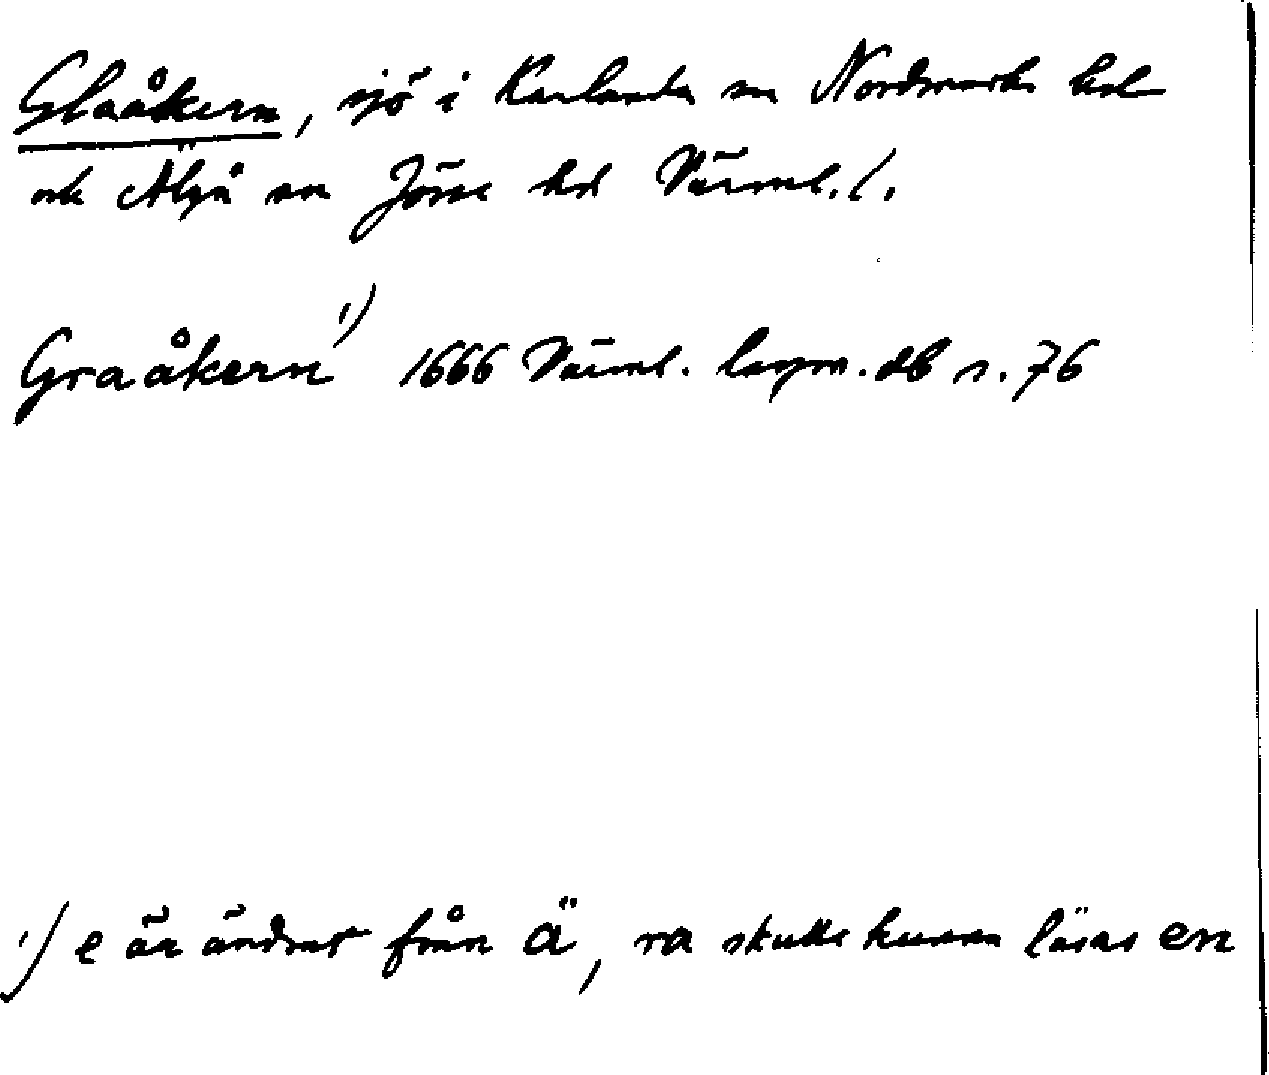 Glaåkern, sjö i Karlanda sn Nordmarks hd
och Älgå sn Jösse hd Värml. l.
Graåkern 1) 1666 Värml. lagm. db s. 76
1) e är ändrat från ä, ra skulle kunna läsas en